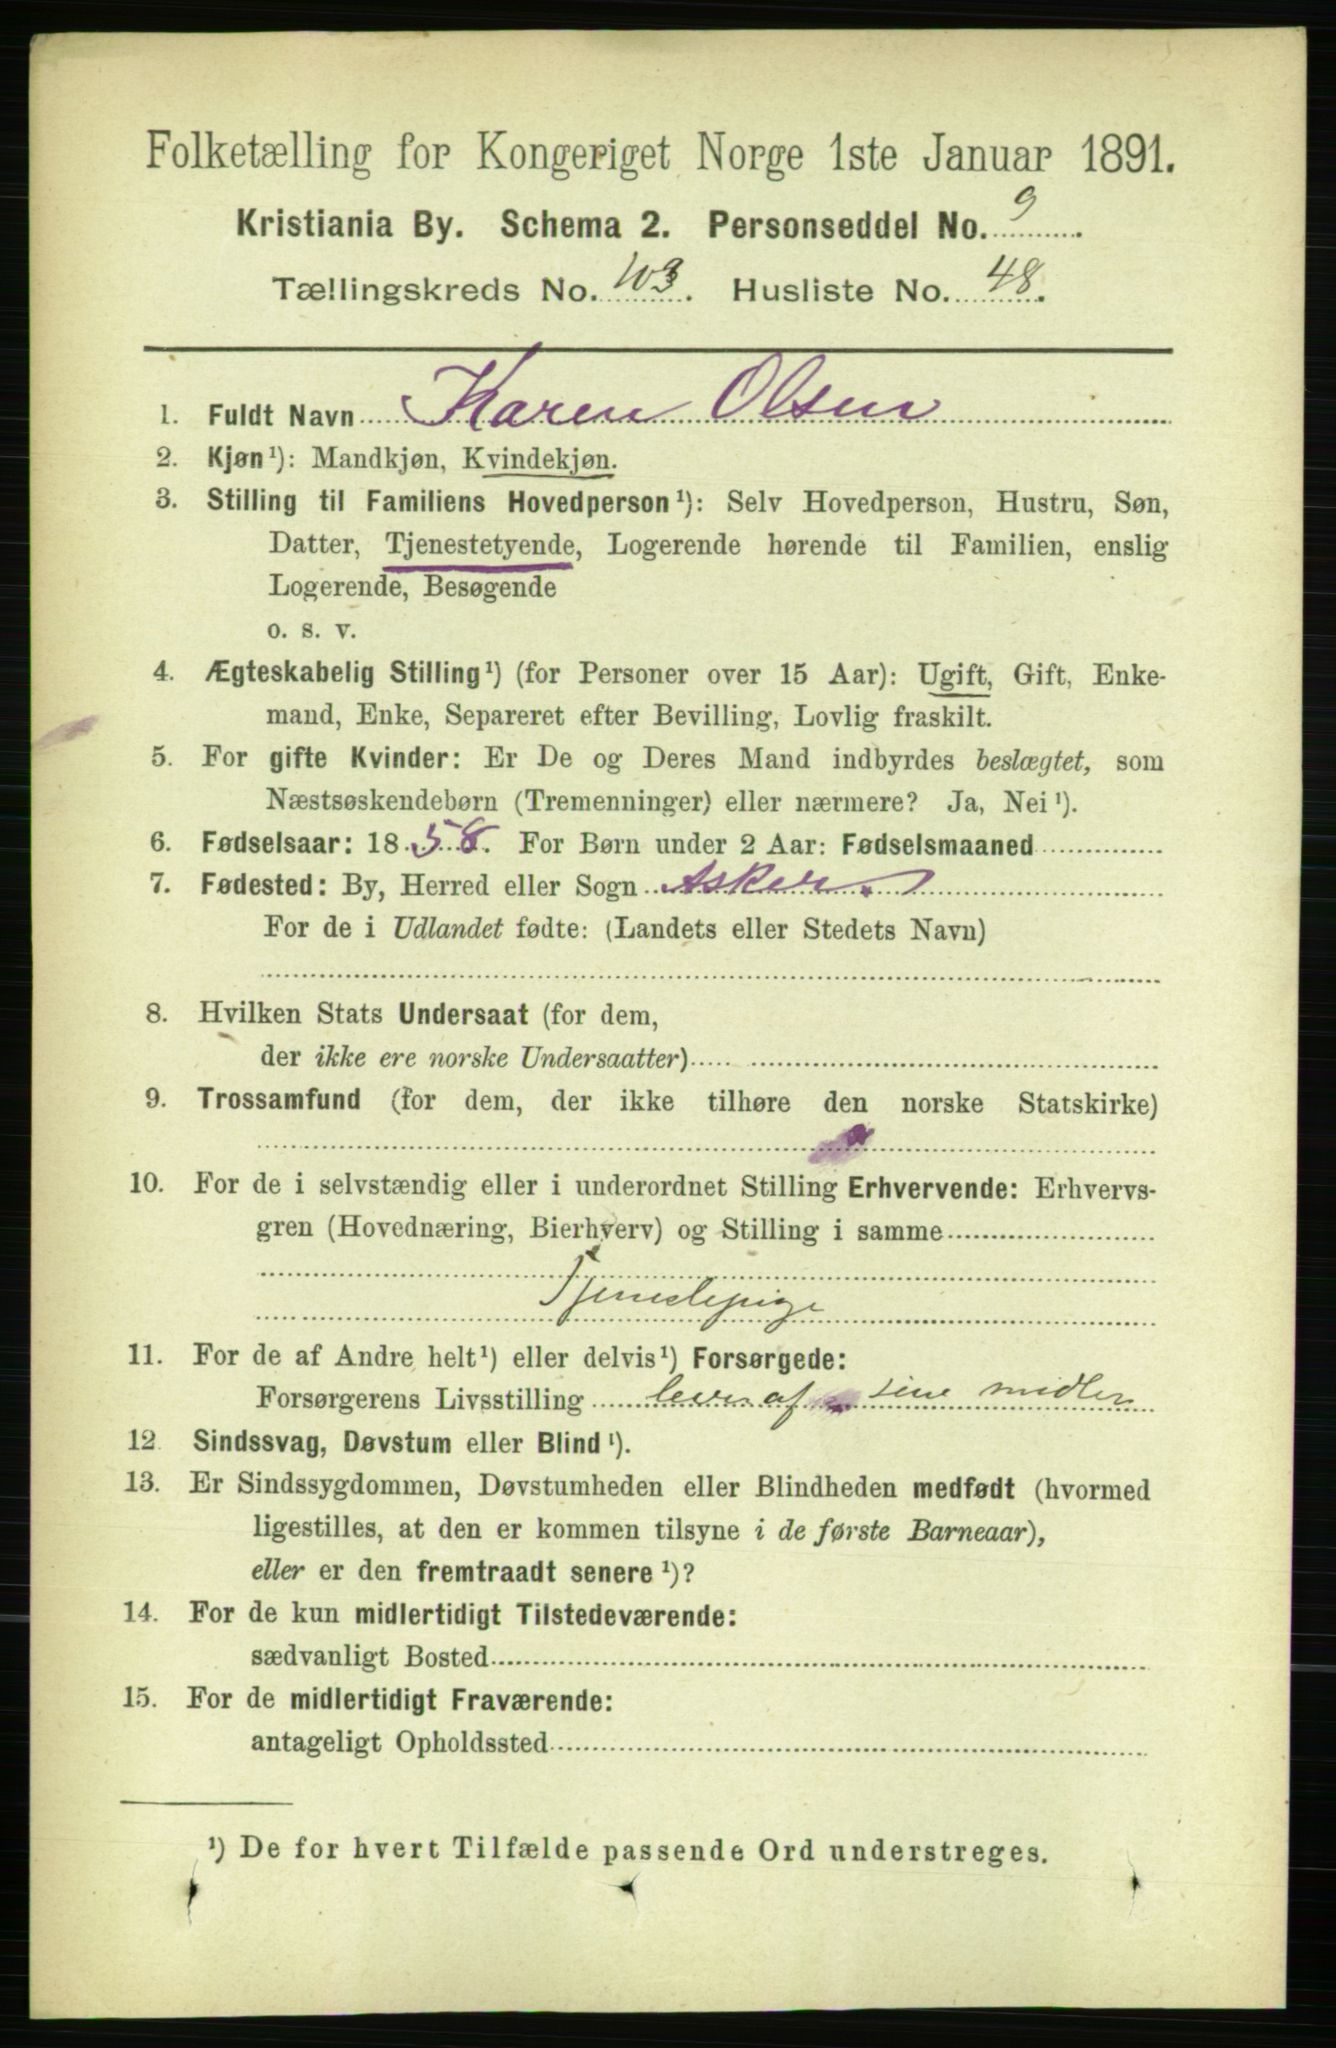 Folketælling for Kongeriget Norge 1ste Januar 1891.
Kristiania By. Schema 2. Personseddel No. 9.
Tællingskreds No. 103. Husliste No. 48.
1. Fuldt Navn Karen Olsen
2. Kjøn¹): Mandkjøn, Kvindekjøn.
3. Stilling til Familiens Hovedperson¹): Selv Hovedperson, Hustru, Søn,
Datter, Tjenestetyende, Logerende hørende til Familien, enslig
Logerende, Besøgende
o. s. v.
4. Ægteskabelig Stilling¹) (for Personer over 15 Aar): Ugift, Gift, Enke-
mand, Enke, Separeret efter Bevilling, Lovlig fraskilt.
5. For gifte Kvinder: Er De og Deres Mand indbyrdes beslægtet, som
Næstsøskendebørn (Tremenninger) eller nærmere? Ja, Nei¹).
6. Fødselsaar: 1858. For Børn under 2 Aar: Fødselsmaaned
7. Fødested: By, Herred eller Sogn Asker.
For de i Udlandet fødte: (Landets eller Stedets Navn)
8. Hvilken Stats Undersaat (for dem,
der ikke ere norske Undersaatter)
9. Trossamfund (for dem, der ikke tilhøre den norske Statskirke)
10. For de i selvstændig eller i underordnet Stilling Erhvervende: Erhvervs-
gren (Hovednæring, Bierhverv) og Stilling i samme
Tjenestepige
11. For de af Andre helt¹) eller delvis¹) Forsørgede:
Forsørgerens Livsstilling lever af sine midler
12 Sindssvag, Døvstum eller Blind¹).
13. Er Sindssygdommen, Døvstumheden eller Blindheden medfødt (hvormed
ligestilles, at den er kommen tilsyne i de første Barneaar),
eller er den fremtraadt senere¹)?
14. For de kun midlertidigt Tilstedeværende:
sædvanligt Bosted
15. For de midlertidigt Fraværende:
antageligt Opholdssted
¹) De for hvert Tilfælde passende Ord understreges.